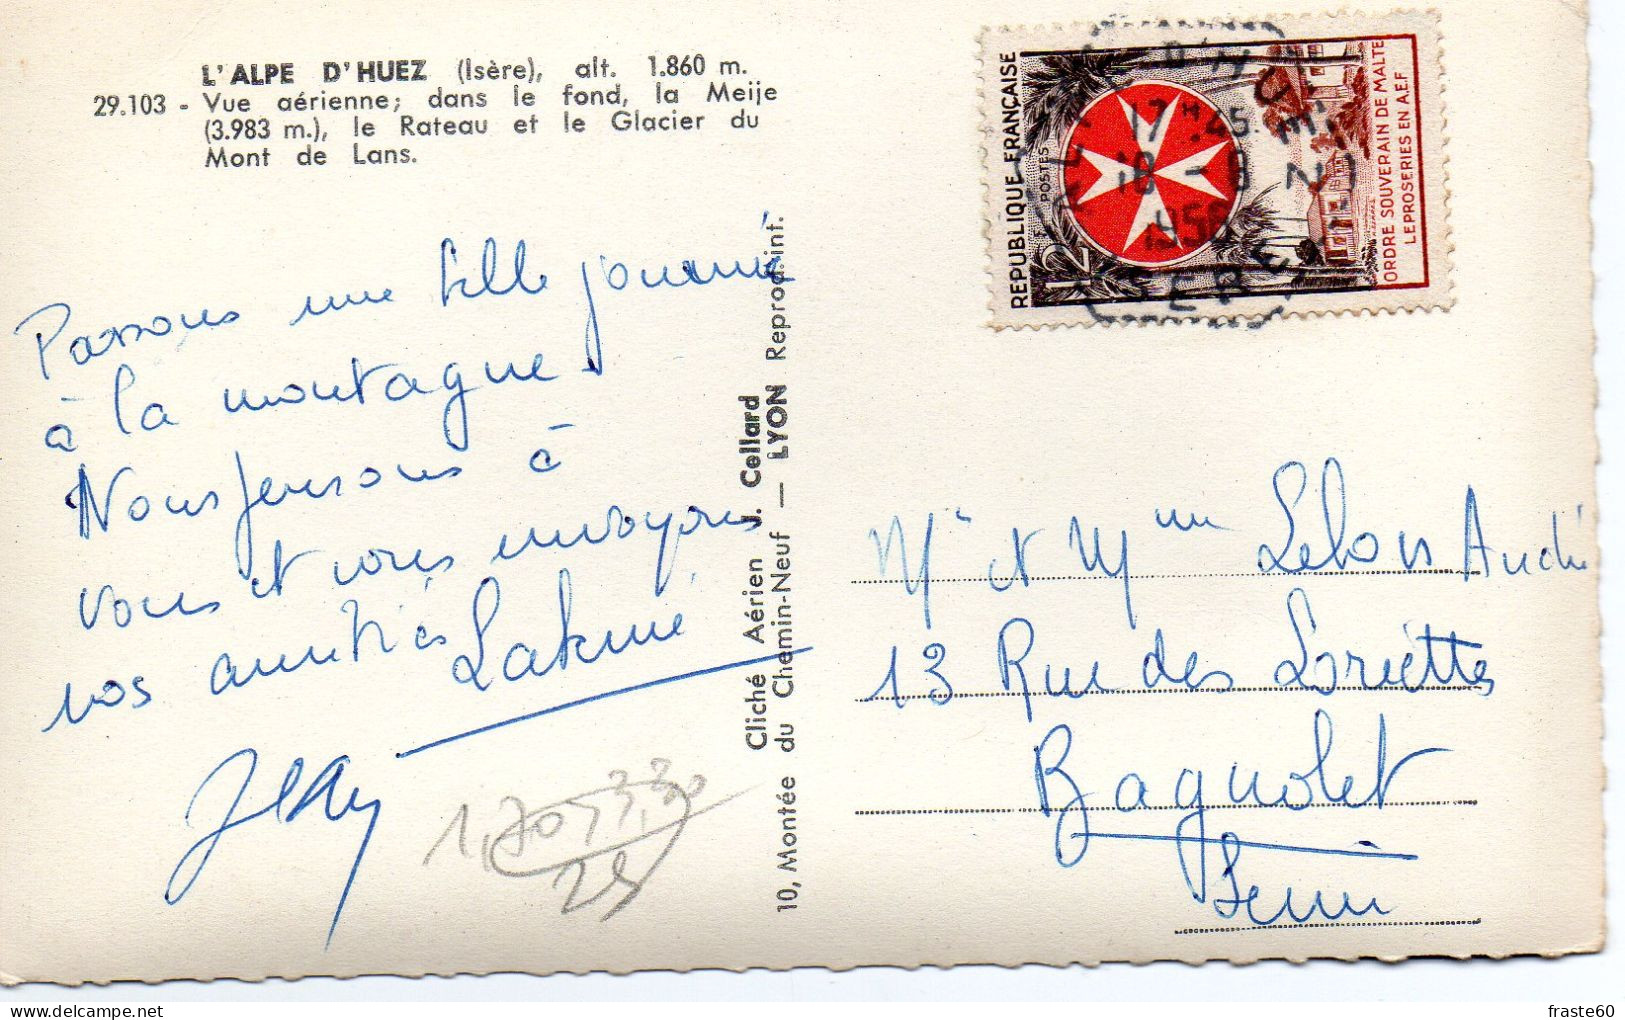 L'ALPE D'HUEZ (Isère), alt. 1.860 m.
29.103 - Vue aérienne; dans le fond, la Meije
(3.983 m.), le Rateau et le Glacier du
Mont de Lans.
Passons une belle journée
à la montagne.
Nous pensons à
vous et vous envoyons
nos amitiés
Cliché Aérien J. Cellard
10, Montée du Chemin-Neuf — LYON Reprod. int.
RÉPUBLIQUE FRANÇAISE
POSTES
12F
ORDRE SOUVERAIN DE MALTE
LEPROSERIES EN A.E.F.
ALPE D'HUEZ
17H45
18 - 8
1956
ISERE
Mr et Mme Lelois André
13 Rue des Loriettes
Bagnolet
Seine
fraste60